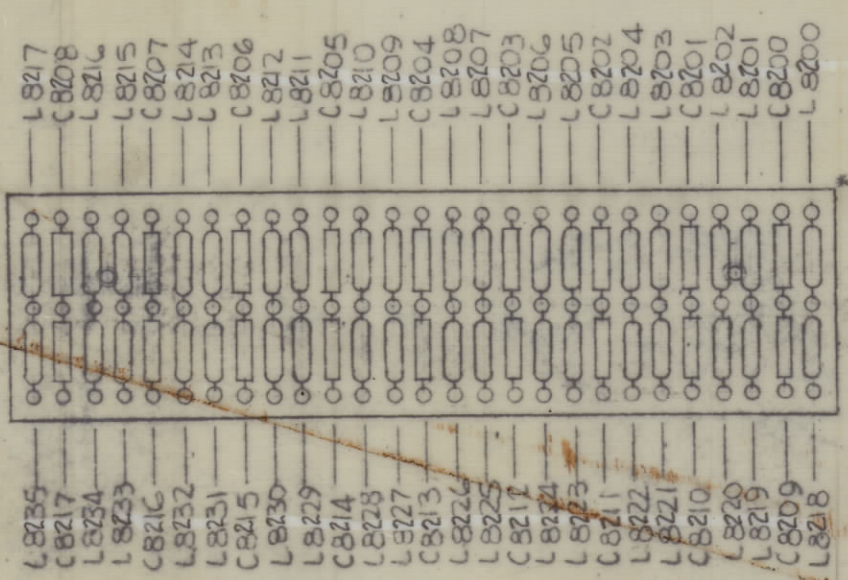 L8217
C8208
L8216
L8215
C8207
L8214
L8213
C8206
L8212
L8211
C8205
L8210
L8209
C8204
L8208
L8207
C8203
L8206
L8205
C8202
L8204
L8203
C8201
L8202
L8201
C8200
L8200
L8235
C8217
L8234
L8233
C8216
L8232
L8231
C8215
L8230
L8229
C8214
L8228
L8227
C8213
L8226
L8225
C8212
L8224
L8223
C8211
L8222
L8221
C8210
L8220
L8219
C8209
L8218